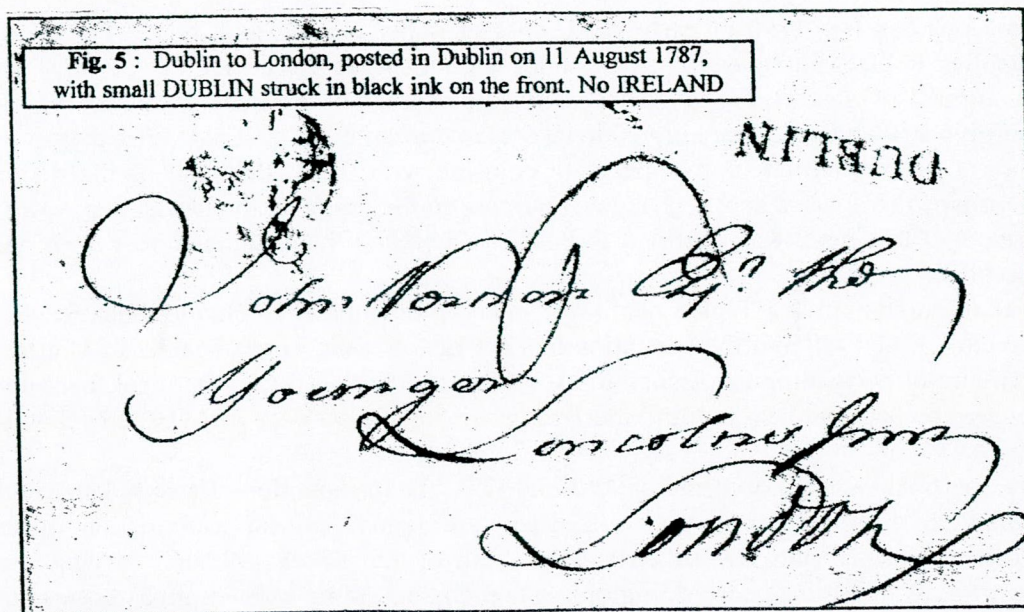 Fig. 5 : Dublin to London, posted in Dublin on 11 August 1787,
with small DUBLIN struck in black ink on the front. No IRELAND
DUBLIN
John the
Younger
Lincolns Inn
London